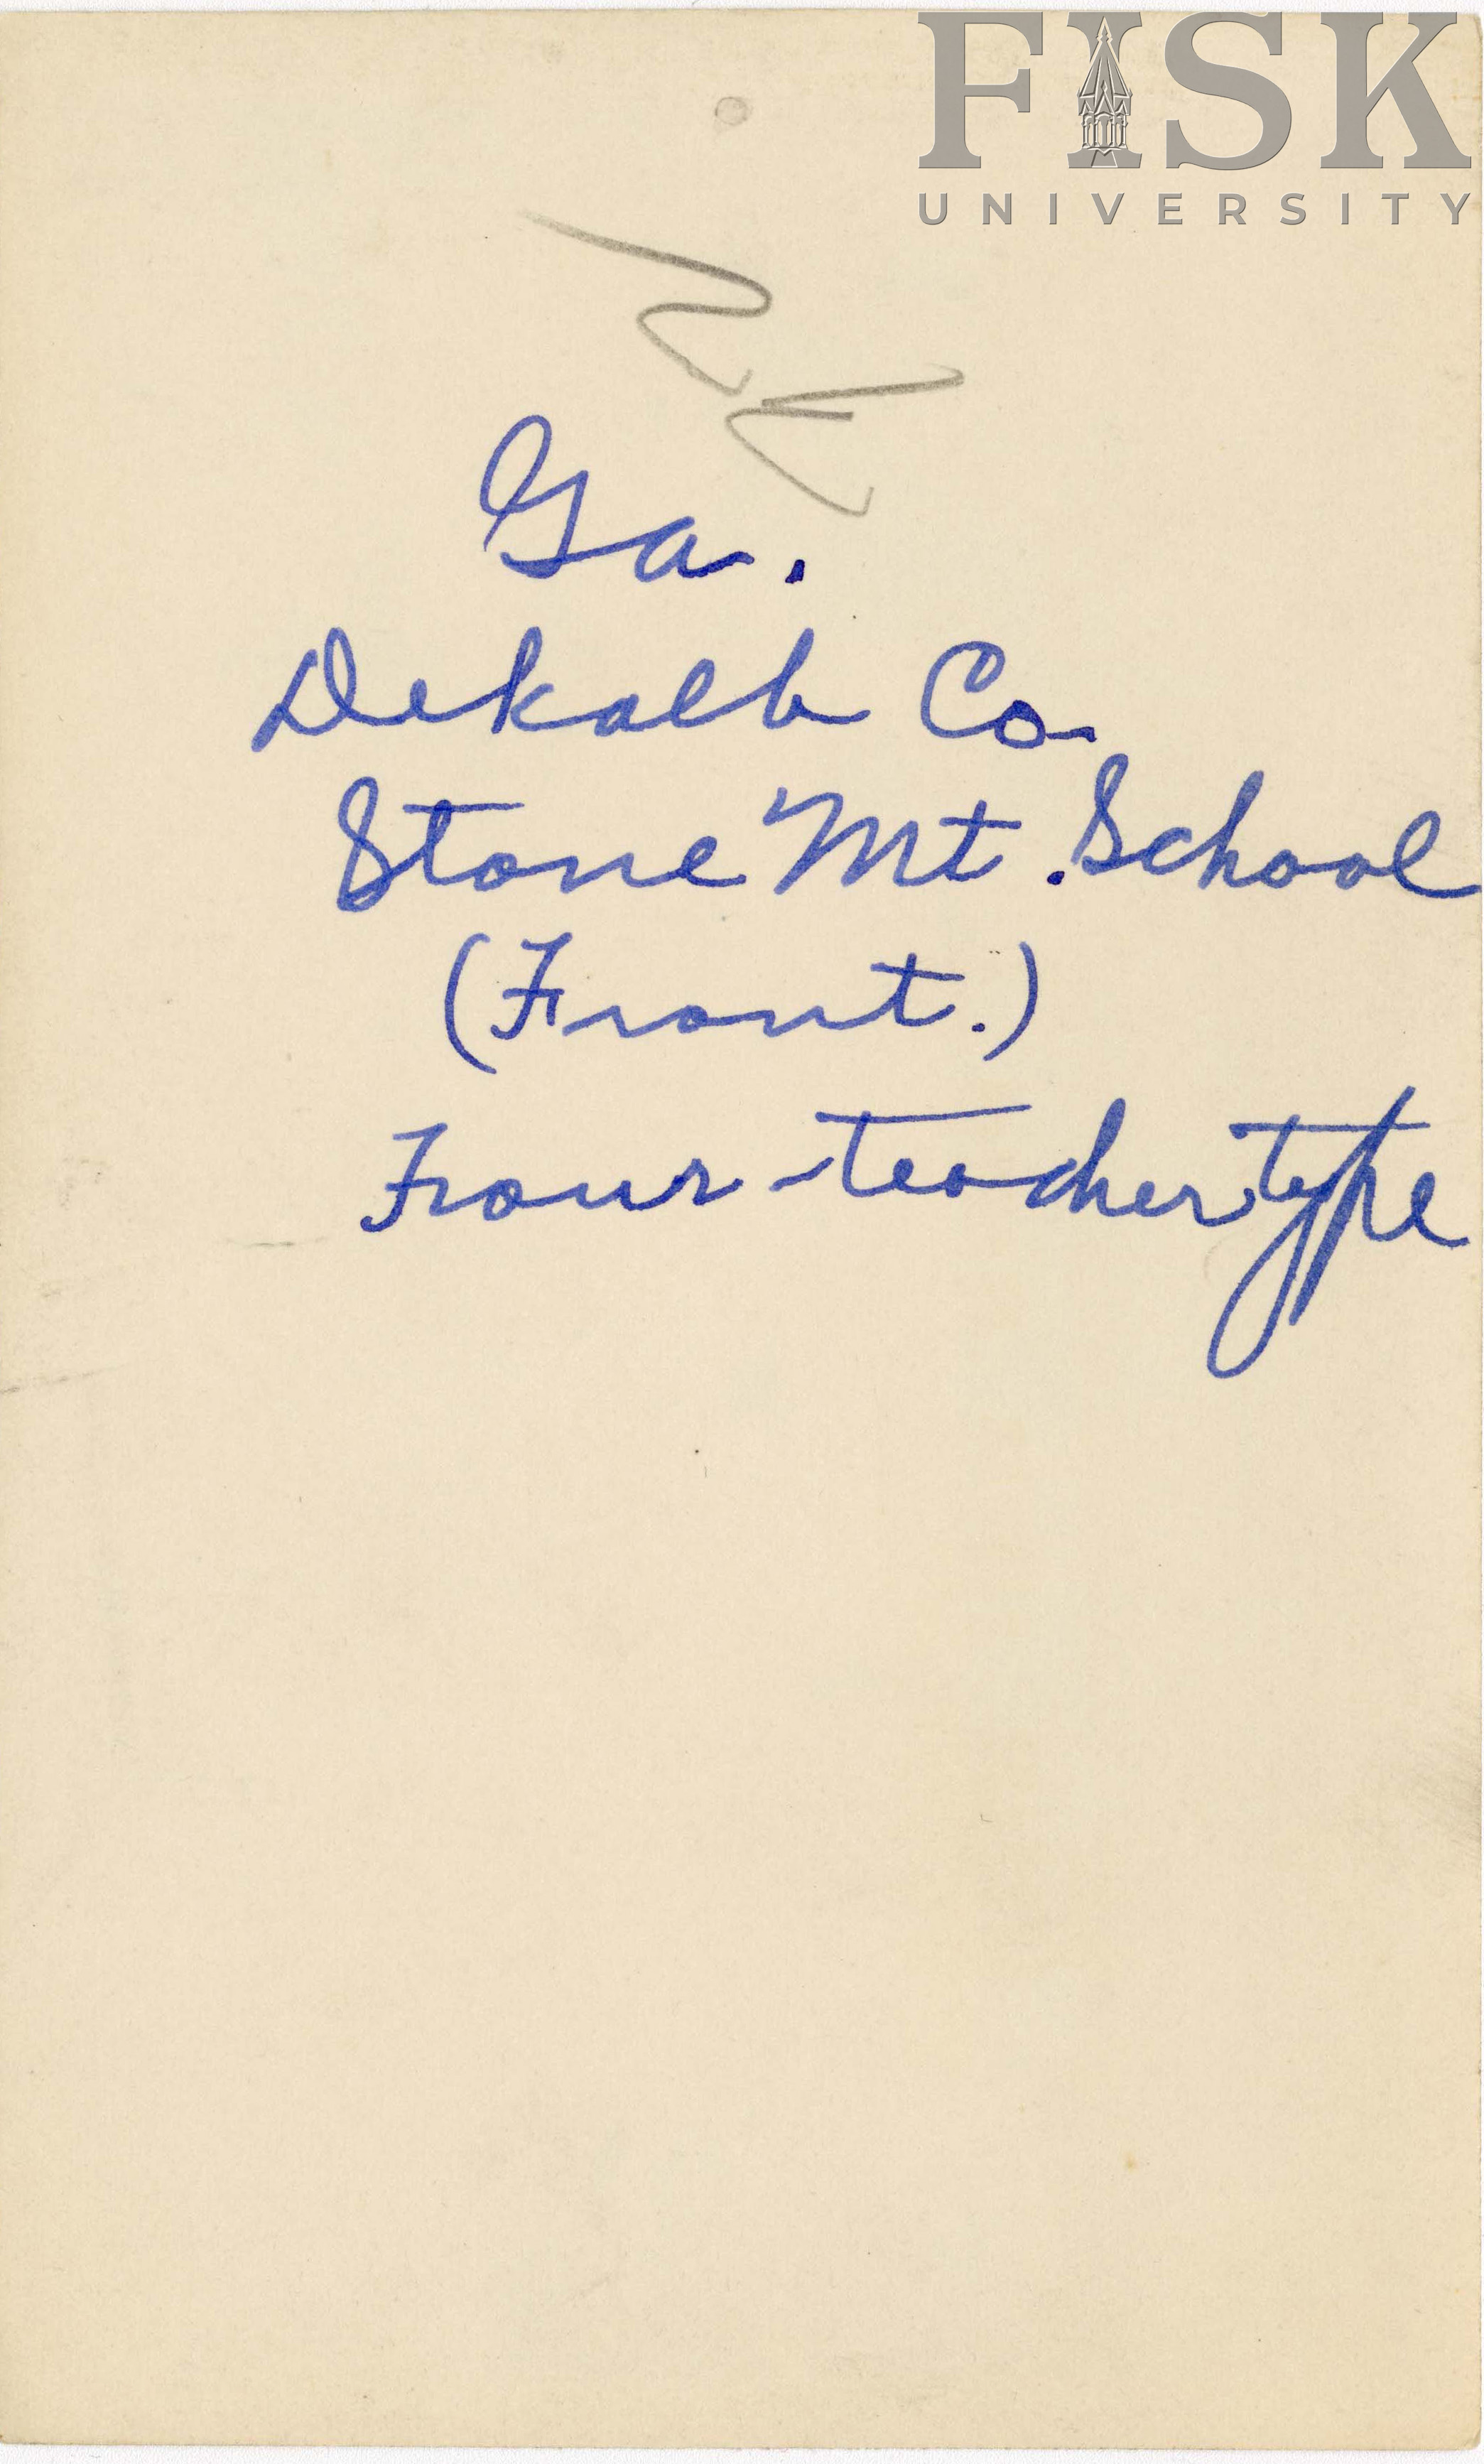 FISK
UNIVERSITY
Ga.
Dekalb Co.
Stone Mt. School
(Front.)
Four-teacher type